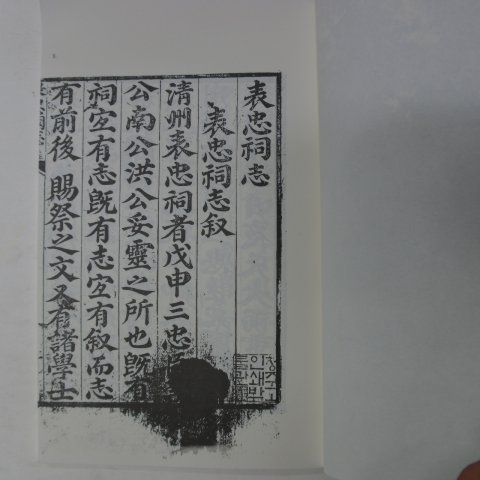 表忠祠志
表忠祠志叙
清州表忠祠者戊申三忠
公南公洪公妥靈之所也旣有
祠宜有志旣有志宜有叙而志
有前後 賜祭之文又有諸學士